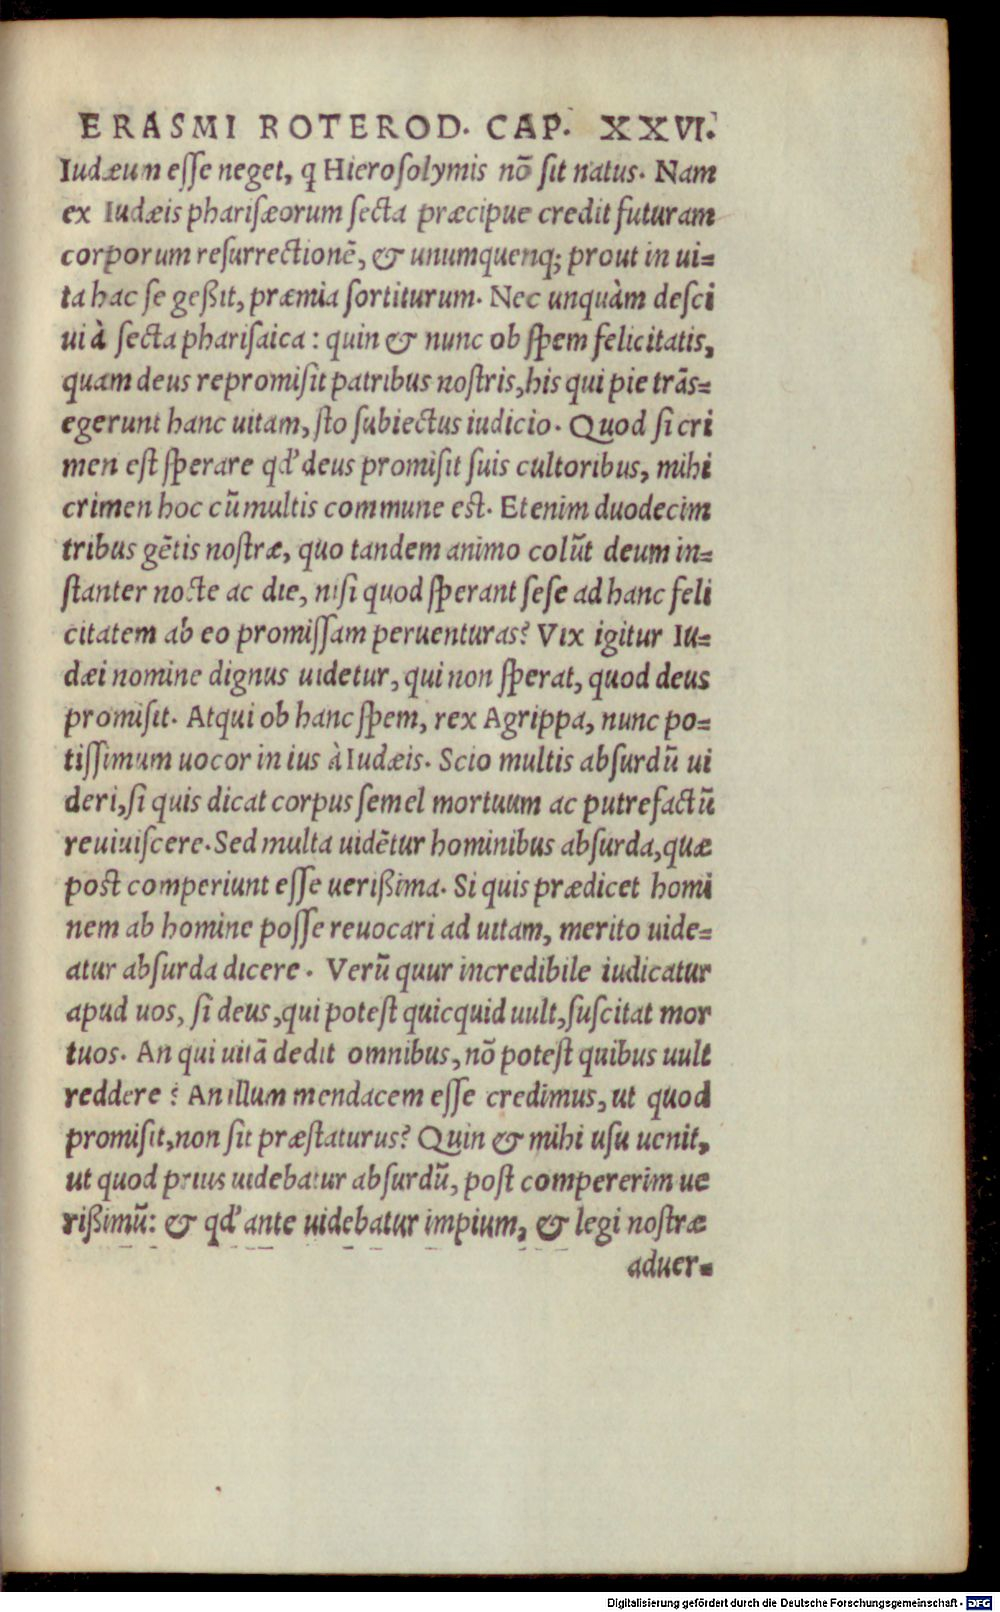 ERASMI ROTEROD. CAP. XXVI.
Iudæum eſſe neget, q Hieroſolymis nõ ſit natus. Nam
ex Iudæis phariſæorum ſecta præcipue credit futuram
corporum reſurrectionẽ, & unumquenq; prout in ui=
ta hac ſe geßit, præmia ſortiturum. Nec unquàm deſci
ui à ſecta phariſaica : quin & nunc ob ſpem felicitatis,
quam deus repromiſit patribus noſtris, his qui pie trãs=
egerunt hanc uitam, ſto ſubiectus iudicio. Quod ſi cri
men eſt ſperare qd' deus promiſit ſuis cultoribus, mihi
crimen hoc cũ multis commune eſt. Etenim duodecim
tribus gẽtis noſtræ, quo tandem animo colũt deum in=
ſtanter nocte ac die, niſi quod ſperant ſeſe ad hanc feli
citatem ab eo promiſſam peruenturas? Vix igitur Iu=
dæi nomine dignus uidetur, qui non ſperat, quod deus
promiſit. Atqui ob hanc ſpem, rex Agrippa, nunc po=
tiſſimum uocor in ius à Iudæis. Scio multis abſurdũ ui
deri, ſi quis dicat corpus ſemel mortuum ac putrefactũ
reuiuiſcere. Sed multa uidẽtur hominibus abſurda, quæ
poſt comperiunt eſſe uerißima. Si quis prædicet homi
nem ab homine poſſe reuocari ad uitam, merito uide=
atur abſurda dicere. Verũ quur incredibile iudicatur
apud uos, ſi deus, qui poteſt quicquid uult, ſuſcitat mor
tuos. An qui uitã dedit omnibus, nõ poteſt quibus uult
reddere? An illum mendacem eſſe credimus, ut quod
promiſit, non ſit præſtaturus? Quin & mihi uſu uenit,
ut quod prius uidebatur abſurdũ, poſt compererim ue
rißimũ: & qd' ante uidebatur impium, & legi noſtræ
aduer=
Digitalisierung gefördert durch die Deutsche Forschungsgemeinschaft - DFG